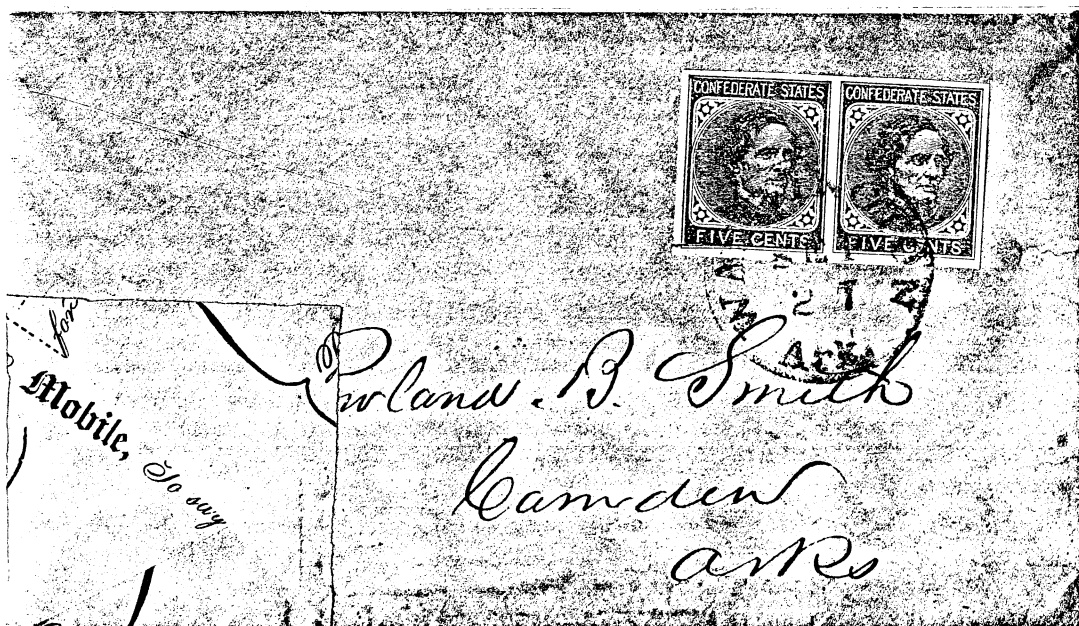 CONFEDERATE STATES
FIVE CENTS
CONFEDERATE STATES
FIVE CENTS
21
Arks
for
Mobile,
To say
Rowland. B. Smith
Camden
arks